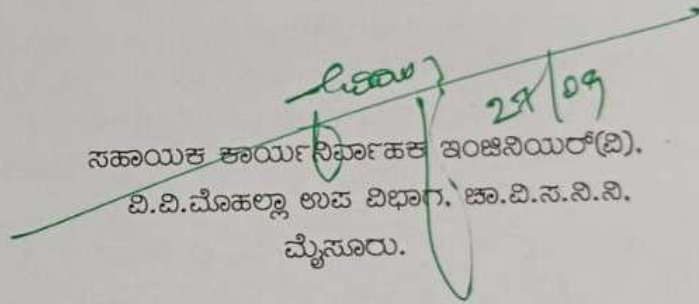 27/09
ಸಹಾಯಕ ಕಾರ್ಯನಿರ್ವಾಹಕ ಇಂಜಿನಿಯರ್(ವಿ).
ವಿ.ವಿ.ಮೊಹಲ್ಲಾ ಉಪ ವಿಭಾಗ, ಚಾ.ವಿ.ಸ.ನಿ.ನಿ.
ಮೈಸೂರು.